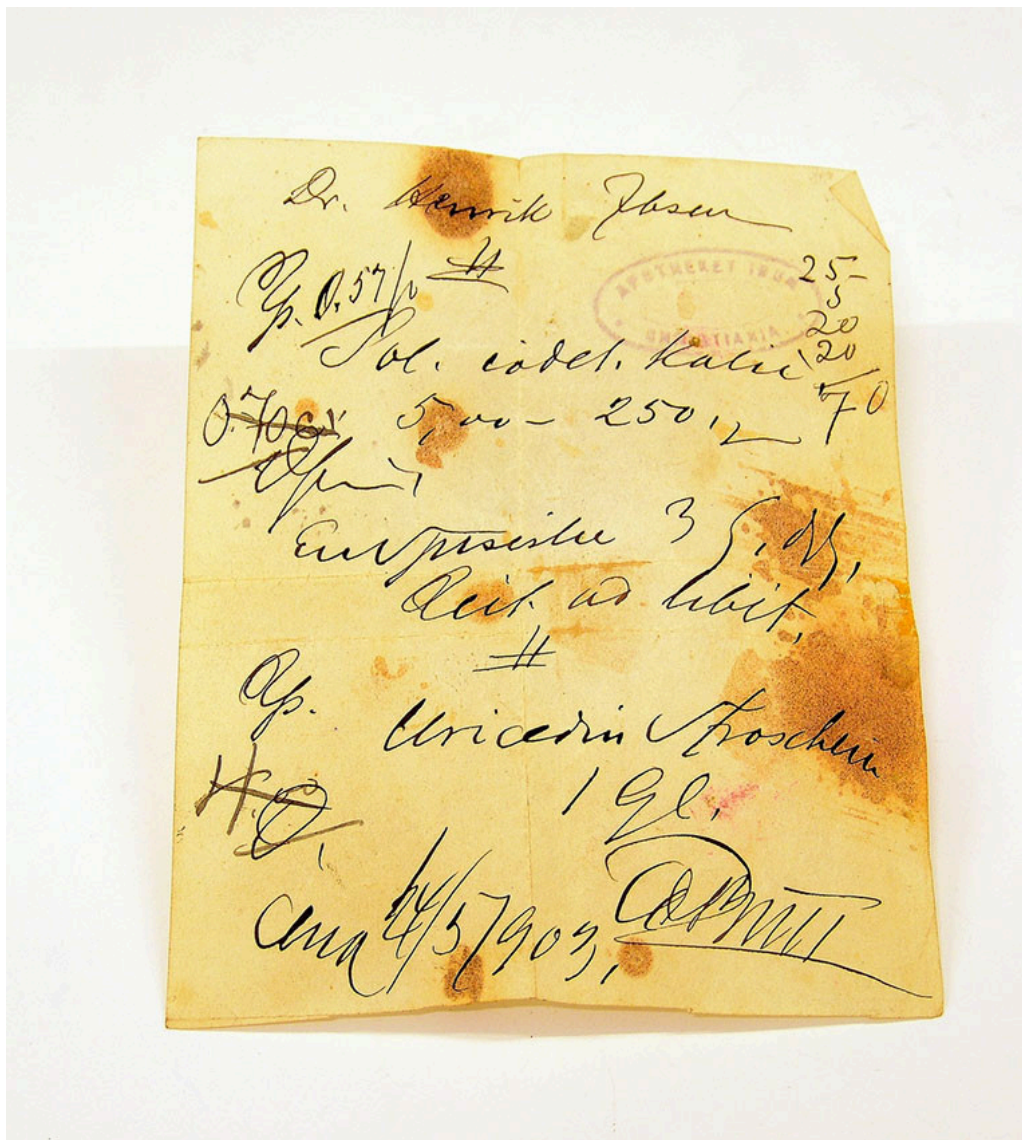 Dr. Henrik Ibsen
Rp. 0.57/0 #
APOTHEKET IBUR
CHRISTIANIA
25-
5
20
20
70
Sol. iodet. kalic
5,00 - 250,
En spiseske 3 g. dgl.
Reit. ad libit.
#
Rp. Uricedin Stroschein
1 Gl.
4/5 1903,